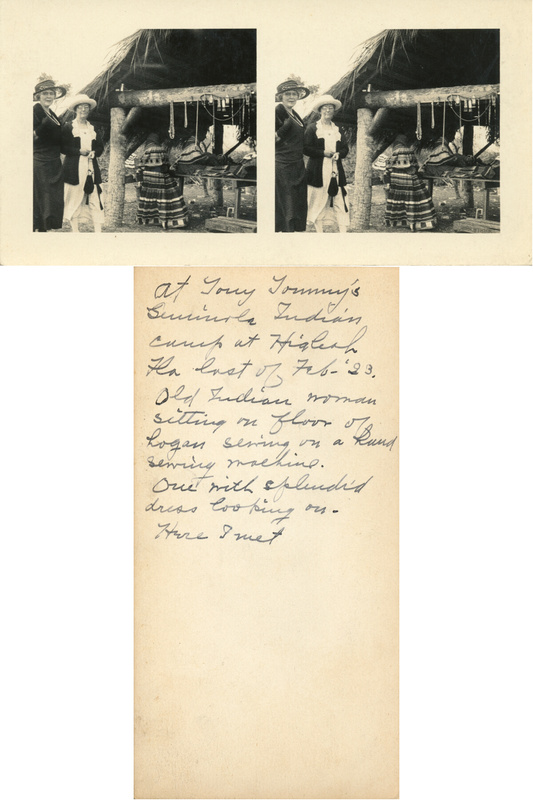 At Tony Tommy's
Seminole Indian
camp at Hialeah
Fla last of Feb-'23.
Old Indian woman
sitting on floor of
hogan sewing on a hand
sewing machine.
One with splendid
dress looking on-
Here I met